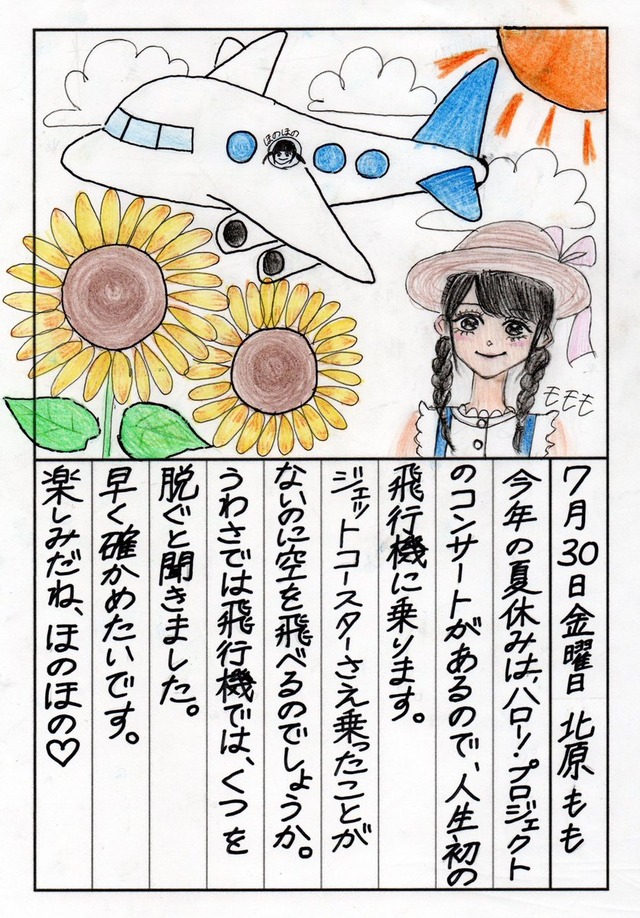 ほのほの
モモモ
7月30日金曜日 北原もも
今年の夏休みは、ハロー!プロジェクト
のコンサートがあるので、人生初の
飛行機に乗ります。
ジェットコースターさえ乗ったことが
ないのに空を飛べるのでしょうか。
うわさでは飛行機では、くつを
脱ぐと聞きました。
早く確かめたいです。
楽しみだね、ほのほの♡